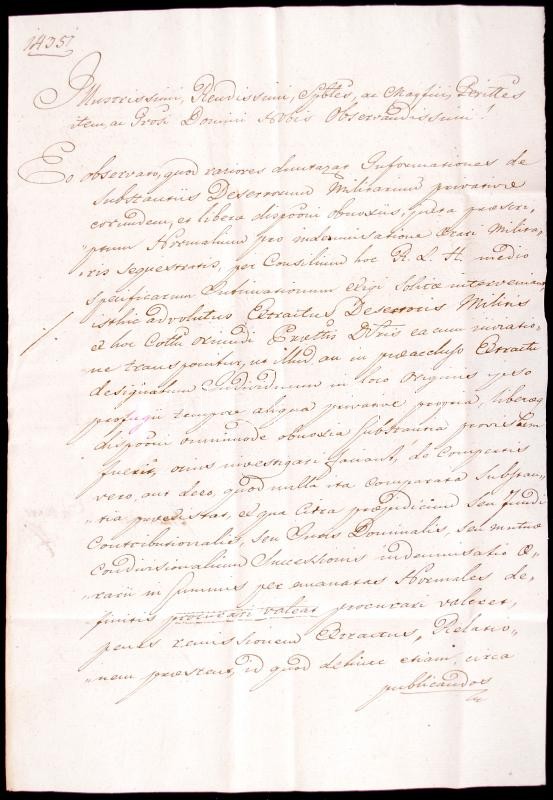 14351
Illustrissimi, Rendissimi, Spbles, ac Magfici, Perillres
item, ac Grosi Domini Nobis Observandissimi!
Eo observato, quod variores duntaxat Informationes de
Substantiis Desertorum Militarium privative
eorundem, et liberae disponi obnoxiis, juxta praescri-
ptum Normalium pro indemnisatione Aerarii Milita-
ris sequestratis, per Consilium hoc R. L. H. medio
specificarum Intimationum exigi solitae interveniant
isthic advolutus Extractus Desertoris Militis
ex hoc Cottu oriundi Praettis Dvris ea cum invitatio-
ne transponitur, ut illud, an in praeacclusо Extractu
designatum Individuum in loco originis ipso
profugii tempore aliqua privative propria, liberaeq
disponi omnimode obnoxia substantia provisum
fuerit, ocius investigari faciant, de compertis
vero, aut deeo, quod nulla ita comparata substan-
tia praeexistat, e qua citra praejudicium seu fundi
Contributionalis, seu Juris Dominalis, seu mutuae
condivisionalium Successionis indemnisatio Ae-
rarii in summis per emanatas Normales de-
finitis procurari valeat procurari valeret,
penes remissionem Extractus, Relatio-
nem praestent, id quod dehinc etiam circa
publicandos